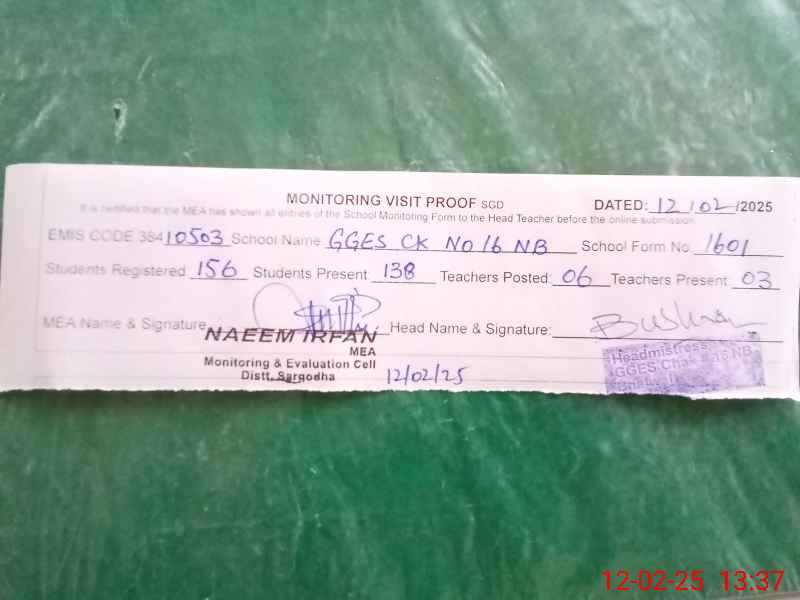 MONITORING VISIT PROOF SGD DATED: 12/02/2025
It is certified that the MEA has shown all entries of the School Monitoring Form to the Head Teacher before the online submission.
EMIS CODE 38410503 School Name GGES CK NO 16 NB School Form No 1601
Students Registered: 156 Students Present: 138 Teachers Posted: 06 Teachers Present: 03
MEA Name & Signature Head Name & Signature: Bushra
NAEEM IRFAN
MEA
Monitoring & Evaluation Cell
Distt. Sargodha 12/02/25
Headmistress
GGES Chak # 16 NB
12-02-25 13:37